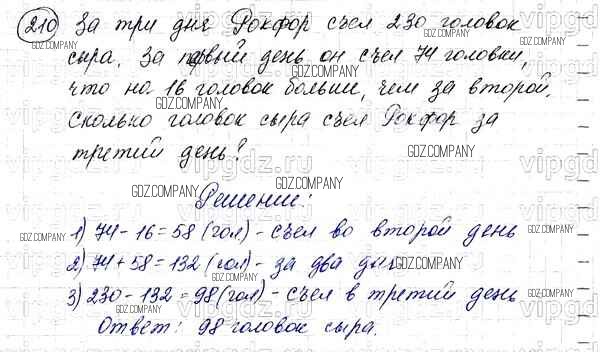 210 За три дня Рокфор съел 230 головок
сыра. За первый день он съел 74 головки,
что на 16 головок больше, чем за второй.
Сколько головок сыра съел Рокфор за
третий день?
Решение:
1) 74-16=58 (гол) - съел во второй день
2) 74+58=132 (гол) - за два дня
3) 230-132=98 (гол) - съел в третий день
Ответ: 98 головок сыра.